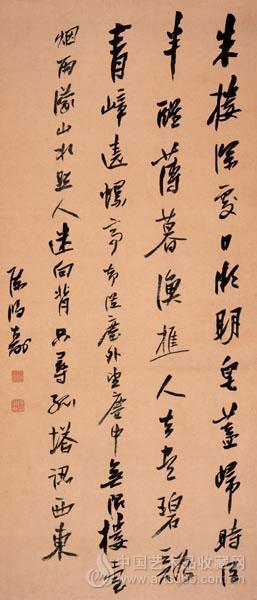 朱樓深處日微明皂蓋歸時酒
半醒薄暮漁樵人去盡碧谿
青嶂遶螺亭却從塵外望塵中無限樓臺
烟雨濛山水照人迷向背只尋孤塔認西東
陳
中国艺术品收藏网